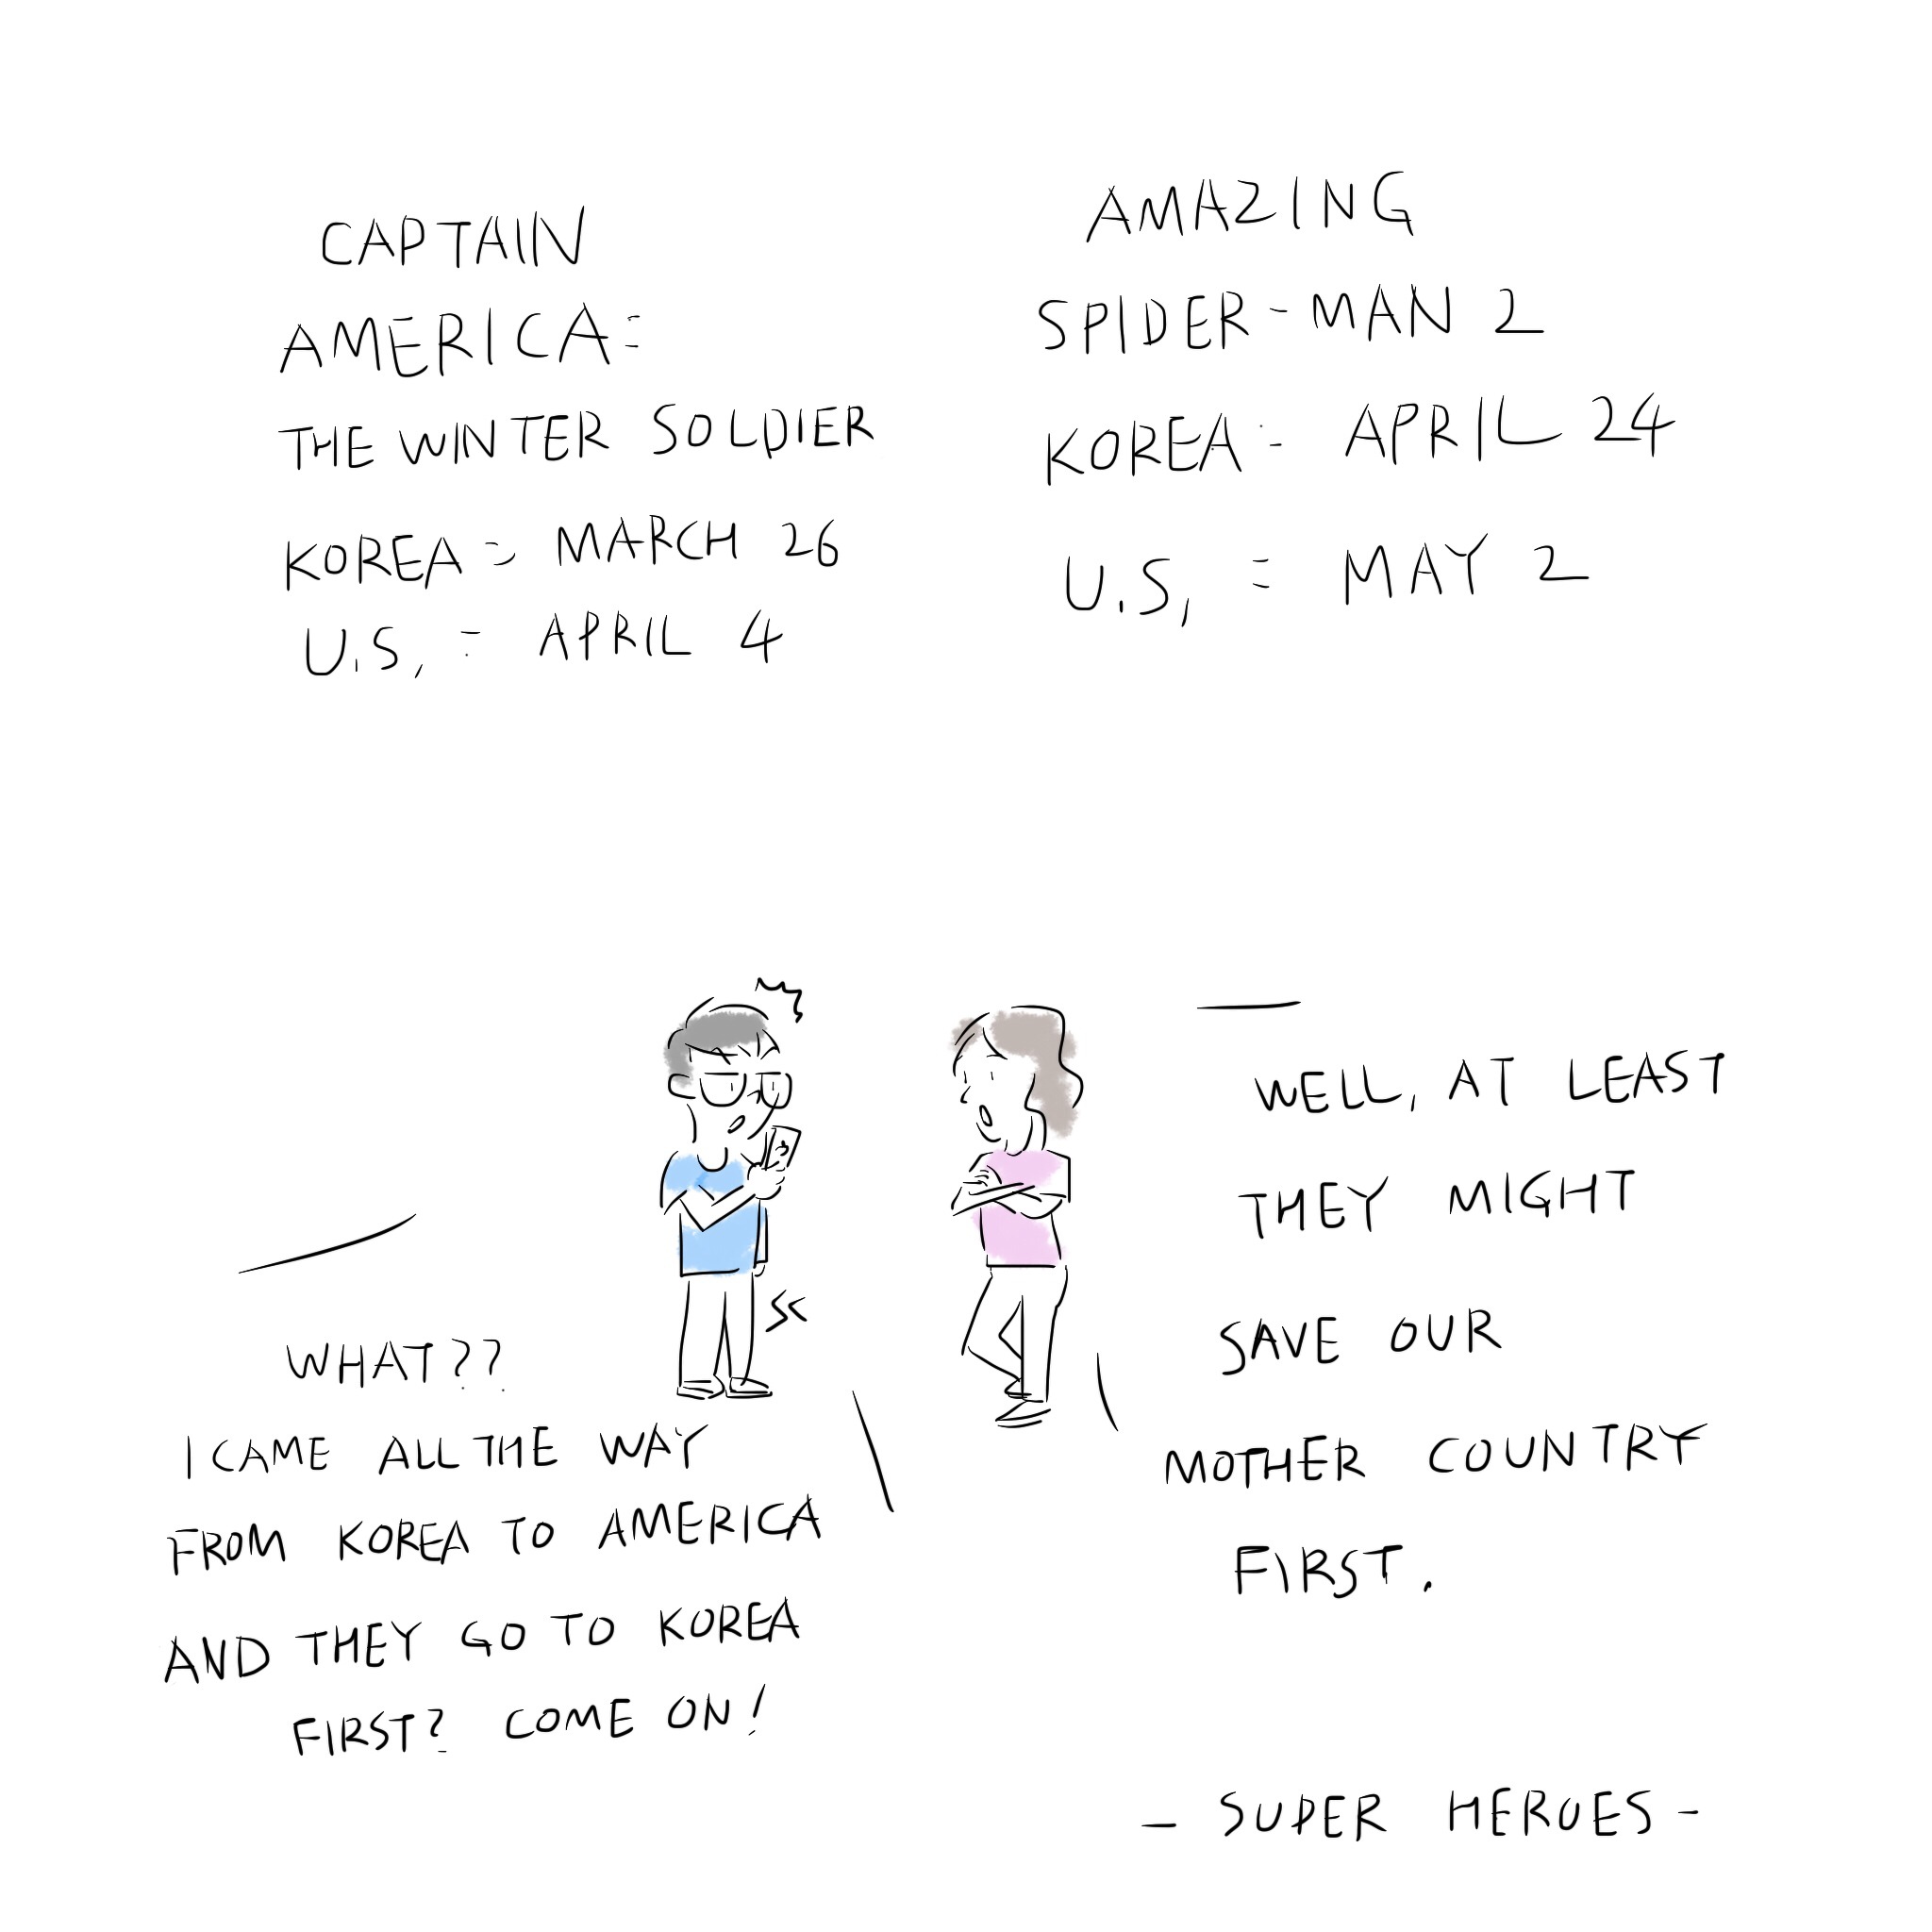 CAPTAIN
AMERICA:
THE WINTER SOLDIER
KOREA : MARCH 26
U.S, : APRIL 4
AMAZING
SPIDER-MAN 2
KOREA : APRIL 24
U.S, : MAY 2
WHAT??
I CAME ALL THE WAY
FROM KOREA TO AMERICA
AND THEY GO TO KOREA
FIRST? COME ON!
WELL, AT LEAST
THEY MIGHT
SAVE OUR
MOTHER COUNTRY
FIRST.
- SUPER HEROES -